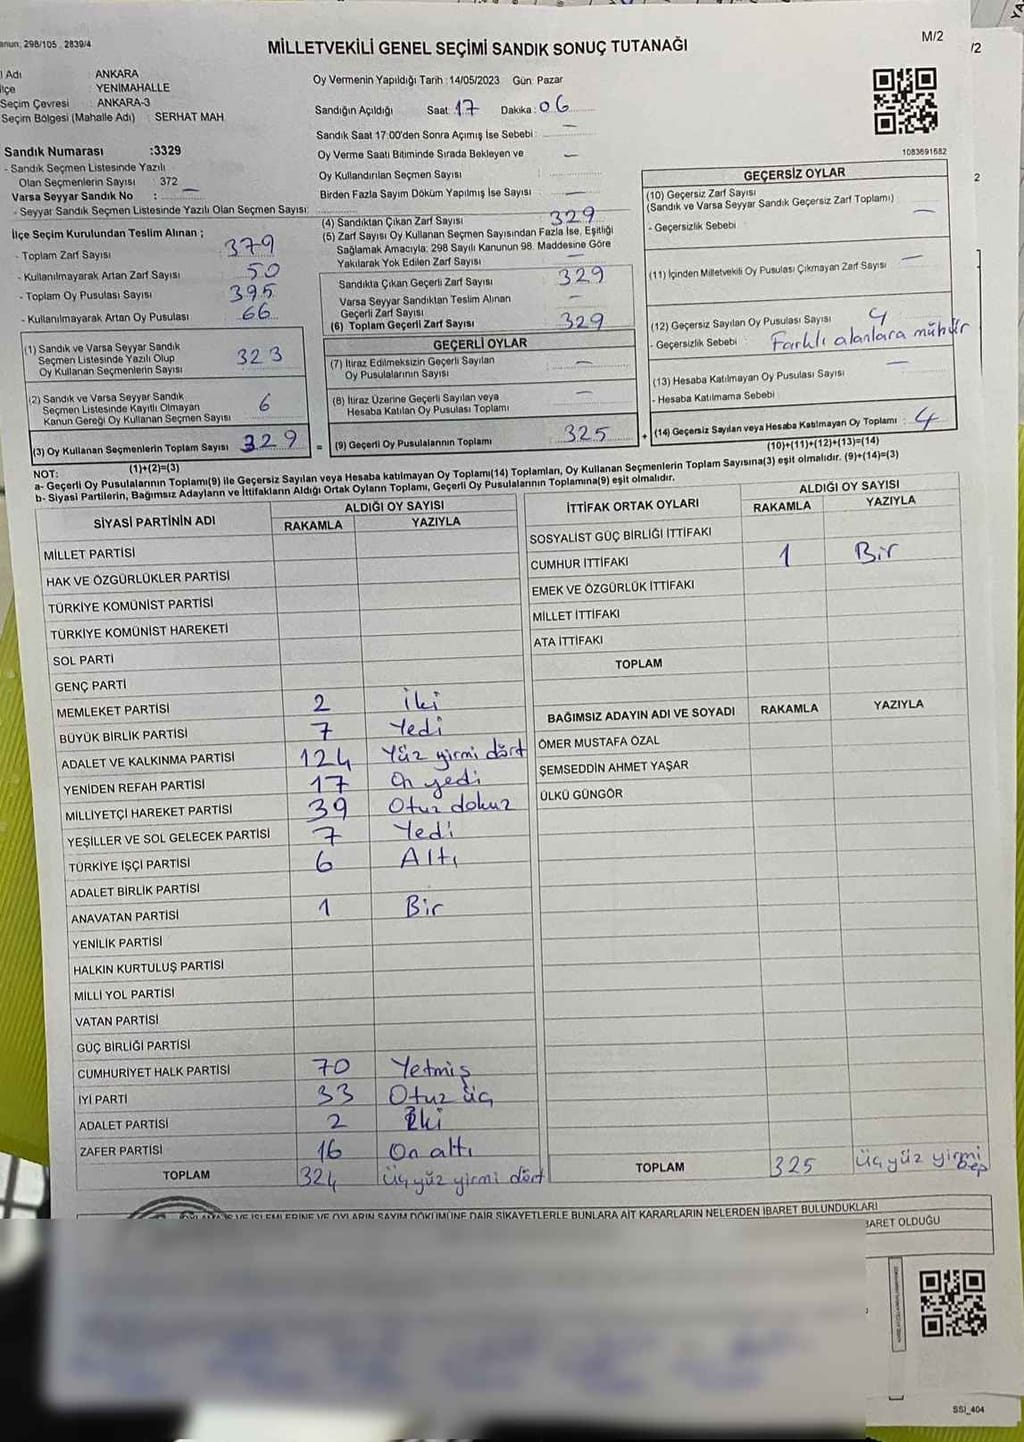 anun: 298/105 2839/4
MİLLETVEKİLİ GENEL SEÇİMİ SANDIK SONUÇ TUTANAĞI
M/2
/2
l Adı : ANKARA
ilçe : YENİMAHALLE
Seçim Çevresi : ANKARA-3
Seçim Bölgesi (Mahalle Adı) : SERHAT MAH
Oy Vermenin Yapıldığı Tarih :14/05/2023 Gün: Pazar
Sandığın Açıldığı Saat: 17 Dakika: 06
Sandık Saat 17:00'den Sonra Açımış İse Sebebi : —
Oy Verme Saati Bitiminde Sırada Bekleyen ve
Oy Kullandırılan Seçmen Sayısı : —
Birden Fazla Sayım Döküm Yapılmış İse Sayısı : —
Sandık Numarası :3329
- Sandık Seçmen Listesinde Yazılı
Olan Seçmenlerin Sayısı : 372
Varsa Seyyar Sandık No : —
- Seyyar Sandık Seçmen Listesinde Yazılı Olan Seçmen Sayısı:
İlçe Seçim Kurulundan Teslim Alınan ;
- Toplam Zarf Sayısı : 379
- Kullanılmayarak Artan Zarf Sayısı : 50
- Toplam Oy Pusulası Sayısı : 395
- Kullanılmayarak Artan Oy Pusulası : 66
(1) Sandık ve Varsa Seyyar Sandık
Seçmen Listesinde Yazılı Olup
Oy Kullanan Seçmenlerin Sayısı : 323
(2) Sandık ve Varsa Seyyar Sandık
Seçmen Listesinde Kayıtlı Olmayan
Kanun Gereği Oy Kullanan Seçmen Sayısı : 6
(3) Oy Kullanan Seçmenlerin Toplam Sayısı : 329
(1)+(2)=(3)
(4) Sandıktan Çıkan Zarf Sayısı : 329
(5) Zarf Sayısı Oy Kullanan Seçmen Sayısından Fazla İse, Eşitliği
Sağlamak Amacıyla; 298 Sayılı Kanunun 98. Maddesine Göre
Yakılarak Yok Edilen Zarf Sayısı : —
Sandıkta Çıkan Geçerli Zarf Sayısı : 329
Varsa Seyyar Sandıktan Teslim Alınan
Geçerli Zarf Sayısı : —
(6) Toplam Geçerli Zarf Sayısı : 329
GEÇERLİ OYLAR
(7) İtiraz Edilmeksizin Geçerli Sayılan
Oy Pusulalarının Sayısı : —
(8) İtiraz Üzerine Geçerli Sayılan veya
Hesaba Katılan Oy Pusulası Toplamı : —
= (9) Geçerli Oy Pusulalarının Toplamı : 325
1083691682
GEÇERSİZ OYLAR
(10) Geçersiz Zarf Sayısı
(Sandık ve Varsa Seyyar Sandık Geçersiz Zarf Toplamı) : —
- Geçersizlik Sebebi
(11) İçinden Milletvekili Oy Pusulası Çıkmayan Zarf Sayısı : —
(12) Geçersiz Sayılan Oy Pusulası Sayısı : 4
- Geçersizlik Sebebi : Farklı alanlara mühür
(13) Hesaba Katılmayan Oy Pusulası Sayısı : —
- Hesaba Katılmama Sebebi
+ (14) Geçersiz Sayılan veya Hesaba Katılmayan Oy Toplamı : 4
(10)+(11)+(12)+(13)=(14)
2
NOT:
a- Geçerli Oy Pusulalarının Toplamı(9) ile Geçersiz Sayılan veya Hesaba katılmayan Oy Toplamı(14) Toplamları, Oy Kullanan Seçmenlerin Toplam Sayısına(3) eşit olmalıdır. (9)+(14)=(3)
b- Siyasi Partilerin, Bağımsız Adayların ve İttifakların Aldığı Ortak Oyların Toplamı, Geçerli Oy Pusulalarının Toplamına(9) eşit olmalıdır.
SİYASİ PARTİNİN ADI ALDIĞI OY SAYISI
RAKAMLA YAZIYLA
MİLLET PARTİSİ
HAK VE ÖZGÜRLÜKLER PARTİSİ
TÜRKİYE KOMÜNİST PARTİSİ
TÜRKİYE KOMÜNİST HAREKETİ
SOL PARTİ
GENÇ PARTİ
MEMLEKET PARTİSİ 2 İki
BÜYÜK BİRLİK PARTİSİ 7 Yedi
ADALET VE KALKINMA PARTİSİ 124 Yüz yirmi dört
YENİDEN REFAH PARTİSİ 17 On yedi
MİLLİYETÇİ HAREKET PARTİSİ 39 Otuz dokuz
YEŞİLLER VE SOL GELECEK PARTİSİ 7 Yedi
TÜRKİYE İŞÇİ PARTİSİ 6 Altı
ADALET BİRLİK PARTİSİ
ANAVATAN PARTİSİ 1 Bir
YENİLİK PARTİSİ
HALKIN KURTULUŞ PARTİSİ
MİLLİ YOL PARTİSİ
VATAN PARTİSİ
GÜÇ BİRLİĞİ PARTİSİ
CUMHURİYET HALK PARTİSİ 70 Yetmiş
İYİ PARTİ 33 Otuz üç
ADALET PARTİSİ 2 İki
ZAFER PARTİSİ 16 On altı
TOPLAM 324 Üçyüz yirmi dört
İTTİFAK ORTAK OYLARI ALDIĞI OY SAYISI
RAKAMLA YAZIYLA
SOSYALİST GÜÇ BİRLİĞİ İTTİFAKI
CUMHUR İTTİFAKI 1 Bir
EMEK VE ÖZGÜRLÜK İTTİFAKI
MİLLET İTTİFAKI
ATA İTTİFAKI
TOPLAM
BAĞIMSIZ ADAYIN ADI VE SOYADI RAKAMLA YAZIYLA
ÖMER MUSTAFA ÖZAL
ŞEMSEDDİN AHMET YAŞAR
ÜLKÜ GÜNGÖR
TOPLAM 325 Üçyüz yirmi beş
VE İŞLEMLERİNE VE OYLARIN SAYIM DÖKÜMÜNE DAİR ŞİKAYETLERLE BUNLARA AİT KARARLARIN NELERDEN İBARET BULUNDUKLARI
BARET OLDUĞU
SSI_404